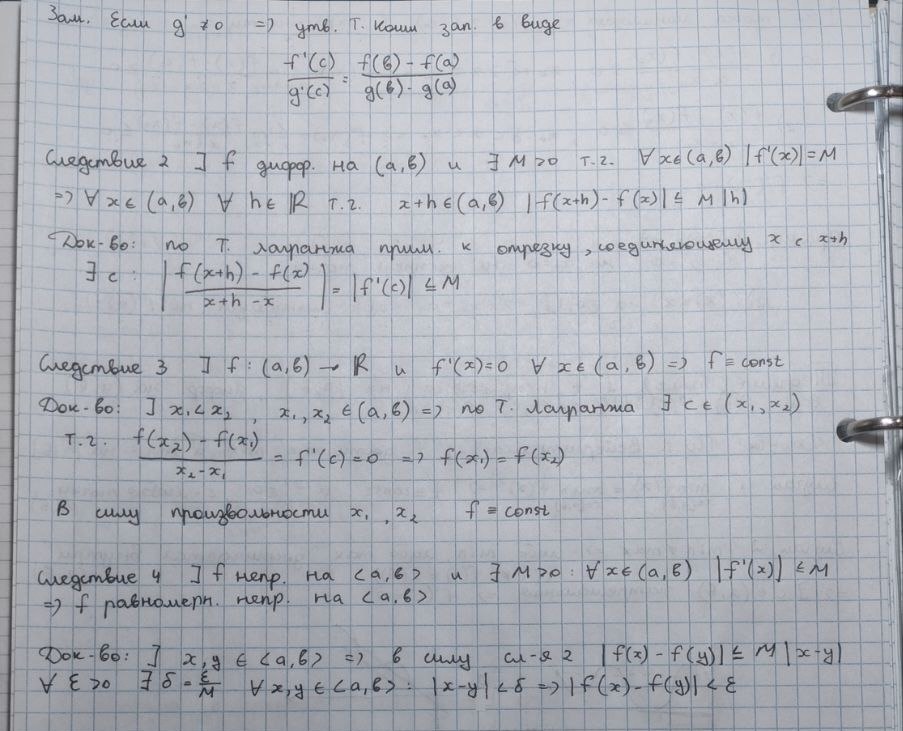 Зам. Если g' ≠ 0 => утв. т. Коши зап. в виде
f'(c)/g'(c) = (f(в) - f(a))/(g(в) - g(a))
Следствие 2 ] f диффер. на (a,в) и ∃ M>0 т.г. ∀ x∈(a,в) |f'(x)|=M
=> ∀ x∈(a,в) ∀ h∈ℝ т.г. x+h∈(a,в) |f(x+h) - f(x)| ≤ M|h|
Док-во: по т. Лагранжа прим. к отрезку, соединяющему x с x+h
∃ c : |(f(x+h) - f(x))/(x+h-x)| = |f'(c)| ≤ M
Следствие 3 ] f : (a,в) → ℝ и f'(x)=0 ∀ x∈(a,в) => f ≡ const
Док-во: ] x₁<x₂, x₁,x₂ ∈(a,в) => по т. Лагранжа ∃ c∈(x₁,x₂)
т.г. (f(x₂) - f(x₁))/(x₂-x₁) = f'(c) = 0 => f(x₁) = f(x₂)
В силу произвольности x₁, x₂ f ≡ const
Следствие 4 ] f непр. на <a,в> и ∃ M>0 : ∀ x∈(a,в) |f'(x)| ≤ M
=> f равномерн. непр. на <a,в>
Док-во: ] x,y ∈ <a,в> => в силу сл-я 2 |f(x) - f(y)| ≤ M |x-y|
∀ ε>0 ∃ δ = ε/M ∀ x,y ∈ <a,в> : |x-y| < δ => |f(x) - f(y)| < ε